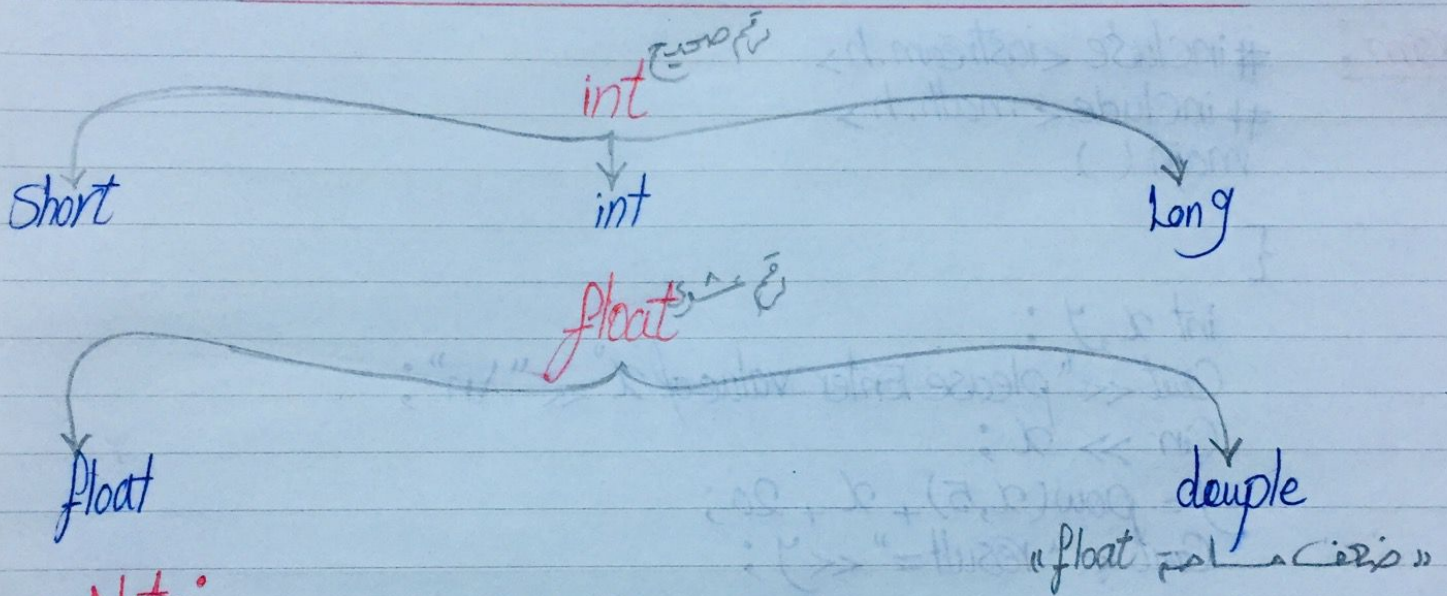 int رقم صحيح
Short int Long
float رقم عشري
float douple
«ضعف مساحة float»
Not: